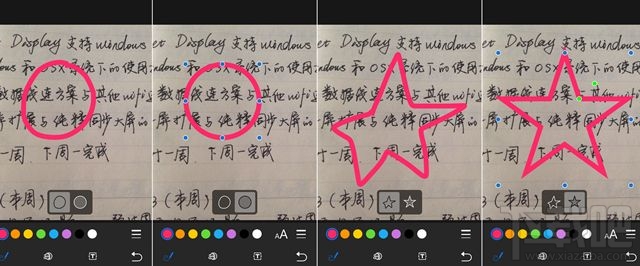 Display 支持 windows
和 OSX 系统下的使用
数据线连方案与其他 wifi
屏扩展与纯粹同步大屏的
十一周, 下周一完成
(本周)
T
Display 支持 windows
和 OSX 系统下的使用
数据线连方案与其他 wifi
屏扩展与纯粹同步大屏的
十一周, 下周一完成
(本周)
AA
T
et Display 支持 windows
ndows 和 OSX 系统下的使用
数据线连方案与其他 wifi
屏扩展与纯粹同步大屏的
十一周, 下周一完成
(本周)
T
et Display 支持 windows
ndows 和 OSX 系统下的使用
数据线连方案与其他 wifi
屏扩展与纯粹同步大屏的
十一周, 下周一完成
(本周)
AA
T
下载吧
www.xiazaiba.com